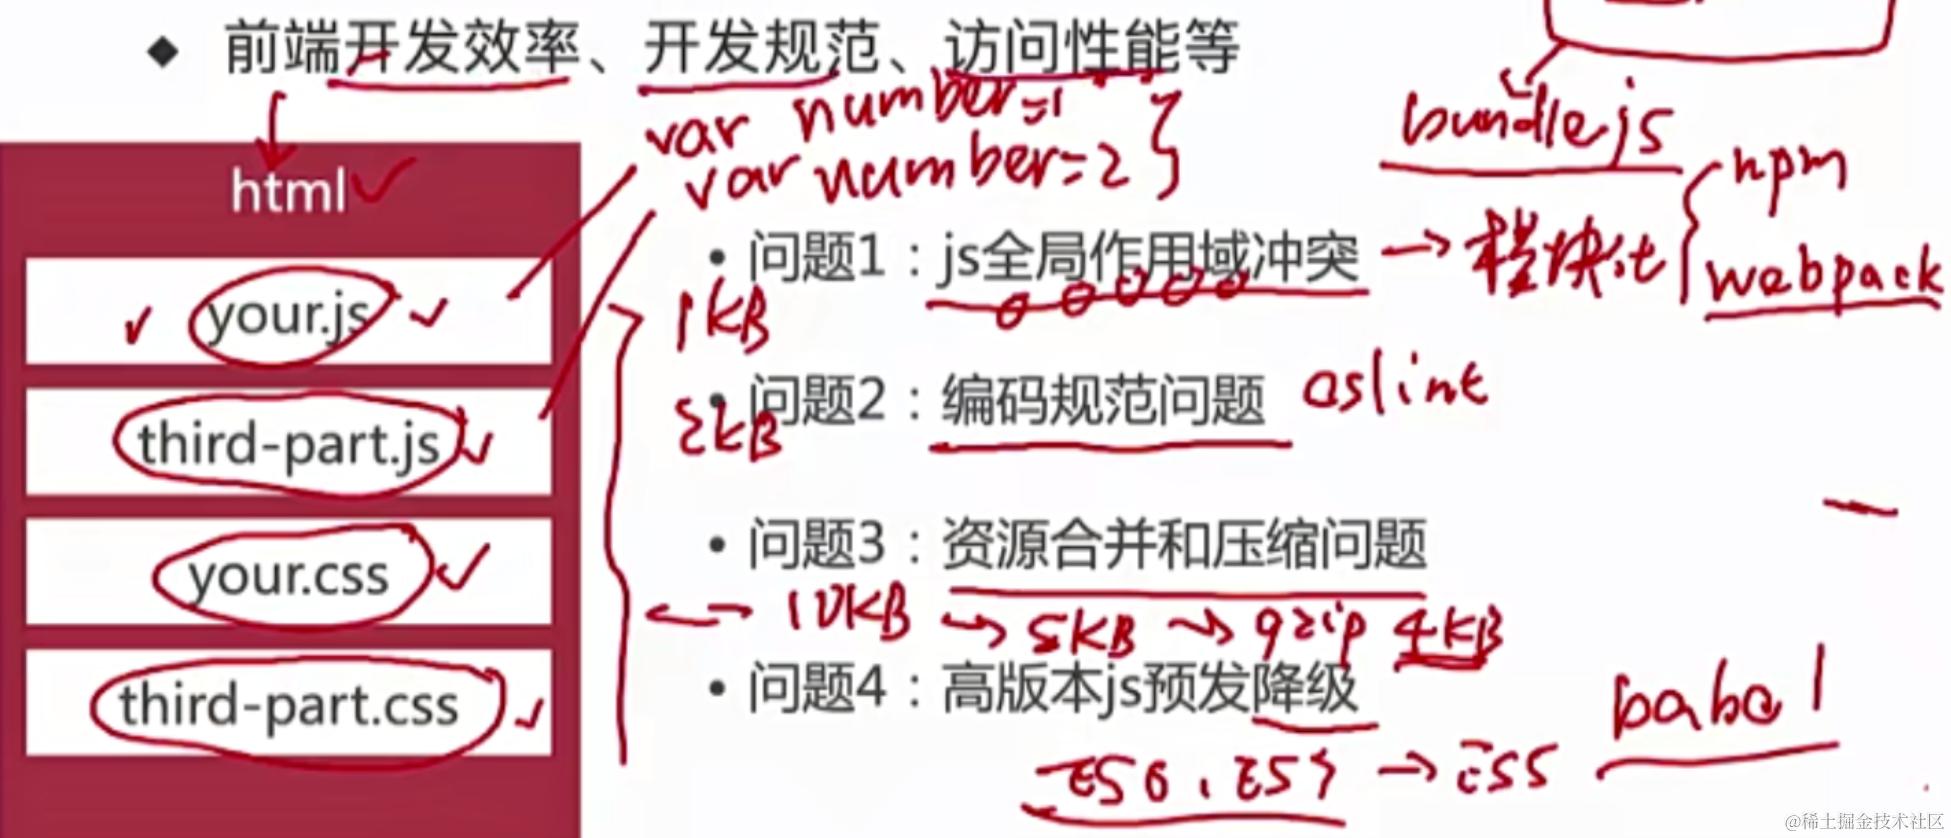 ◆ 前端开发效率、开发规范、访问性能等
var number=1
var number=2
bundlejs
npm
webpack
html
your.js
third-part.js
your.css
third-part.css
• 问题1：js全局作用域冲突 → 模块化
1KB
• 问题2：编码规范问题 eslint
2KB
• 问题3：资源合并和压缩问题
10KB → 5KB → gzip 4KB
• 问题4：高版本js预发降级
babel
ES6, ES7 → ES5
@稀土掘金技术社区